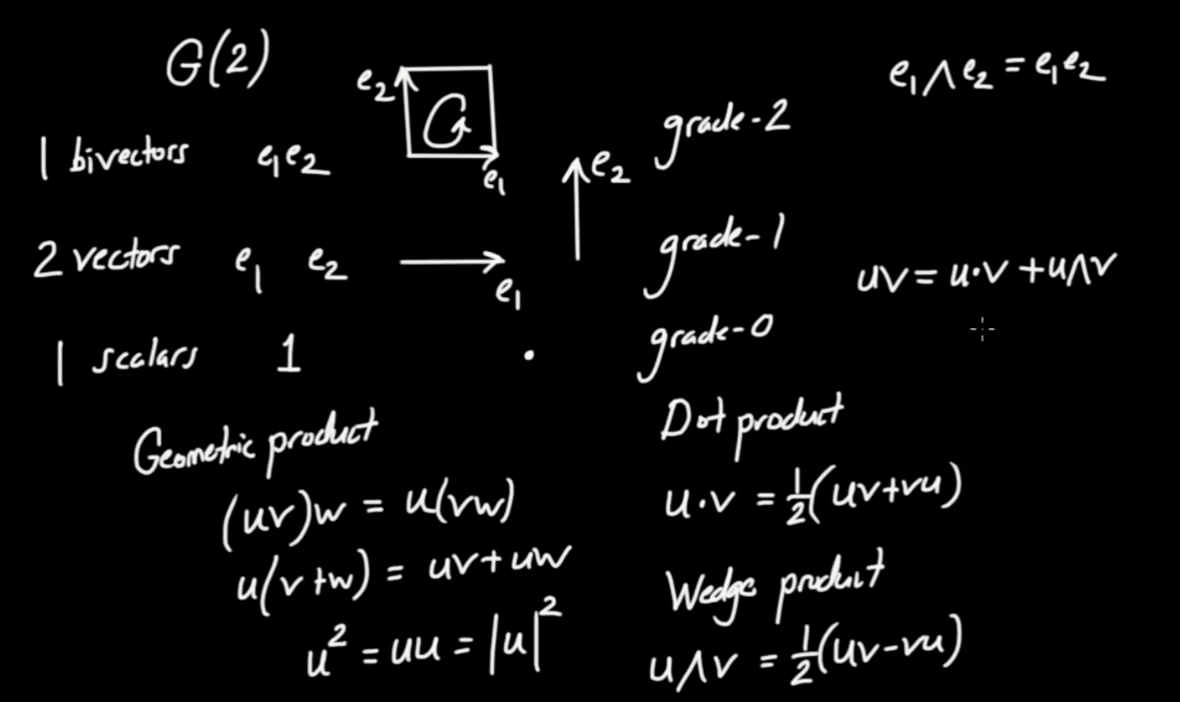 G(2)
e₂
e₁
e₁∧e₂ = e₁e₂
1 bivectors e₁e₂
grade-2
e₂
2 vectors e₁ e₂
e₁
grade-1
uv = u·v + u∧v
1 scalars 1
grade-0
Geometric product
(uv)w = u(vw)
u(v+w) = uv+uw
u² = uu = |u|²
Dot product
u·v = ½(uv+vu)
Wedge product
u∧v = ½(uv-vu)